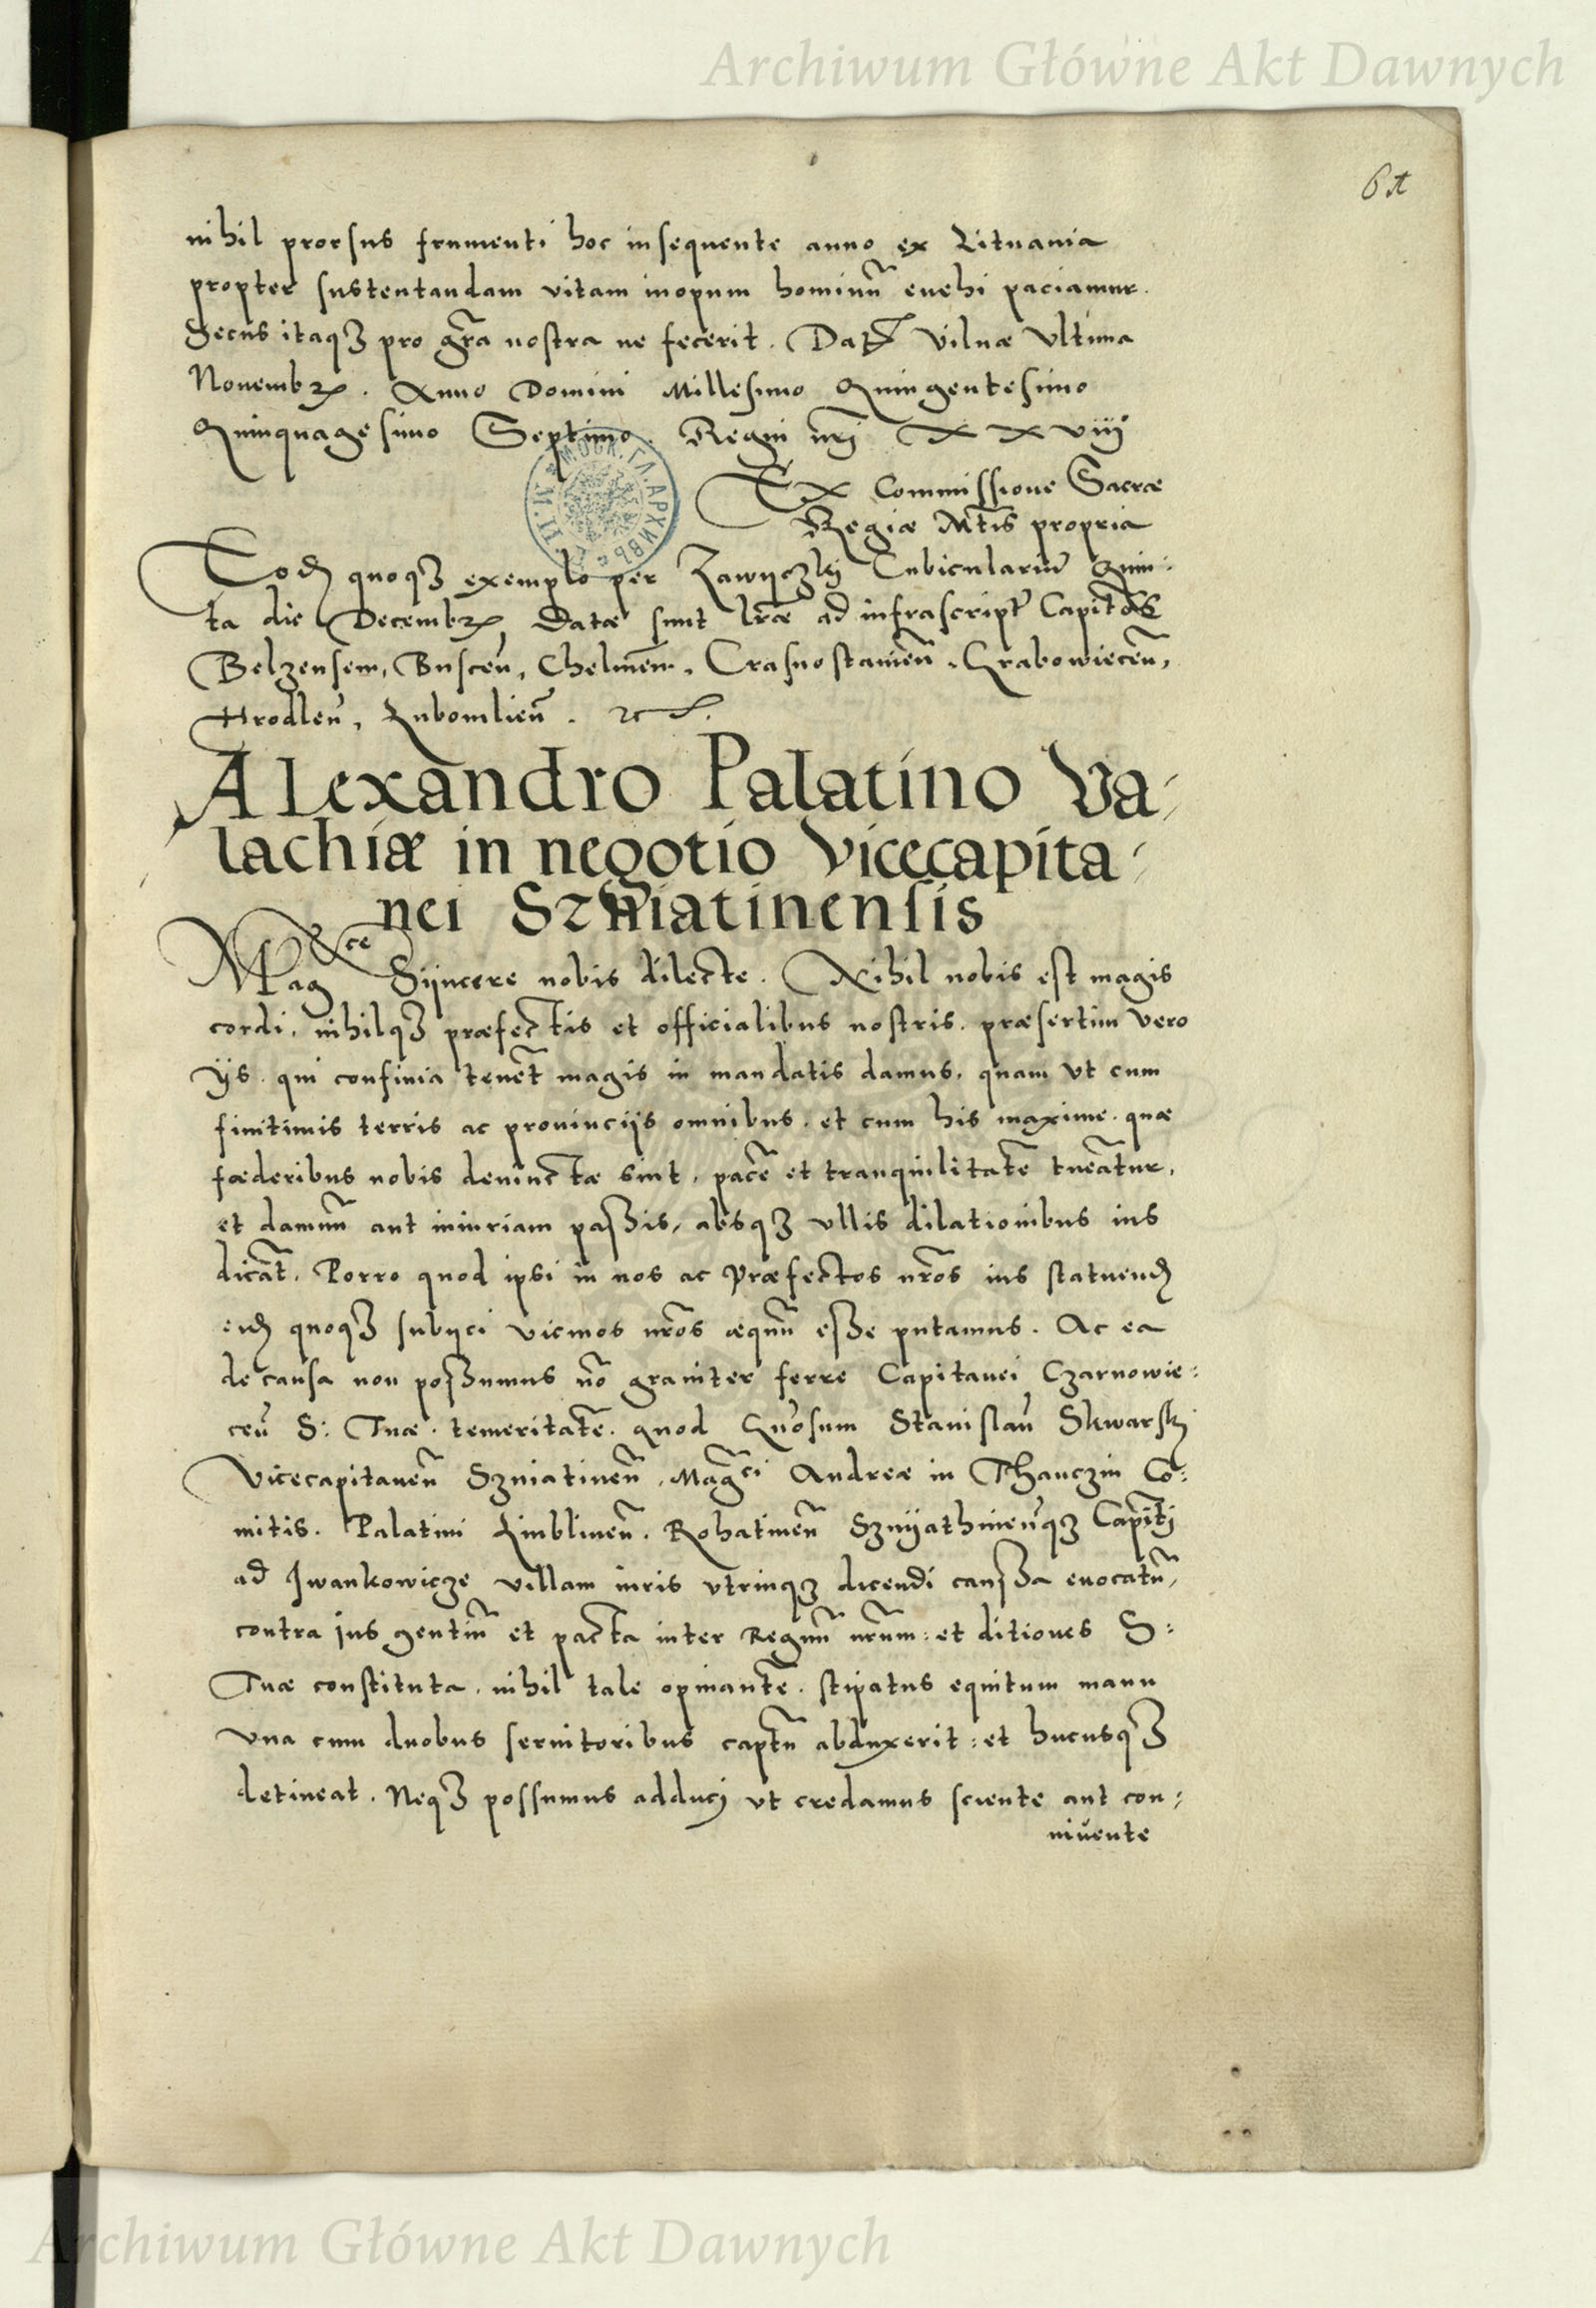 Archiwum Główne Akt Dawnych
nihil prorsus frumenti hoc insequente anno ex Lituania
propter sustentandam vitam inopum hominũ euehi paciamur.
Secus itaqꝫ pro grã nostra ne fecerit. Dat Vilnæ Vltima
Novembꝝ. Anno Domini Millesimo Quingentesimo
Quinquagesimo Septimo. Regni nrĩ XXVIII
Ex Commissione Sacræ
Regiæ Mtis propria
Eod quoqꝫ exemplo per Zawyczky Cubiculariũ Quin:
ta die Decembꝝ Datæ sunt lræ ad infrascript Capit
Belzensem, Buscẽn, Chelmeñ, Crasnostauieñ, Grabowieceñ,
Hrodleñ, Lubomlieñ.
Alexandro Palatino Va-
lachiæ in negotio Vicecapita-
nei Szniatinensis
Magce Syncere nobis dilecte. Nihil nobis est magis
cordi, nihilqꝫ præfectis et officialibus nostris, præsertim vero
ijs, qui confinia tenẽt magis in mandatis damus, quam vt cum
finitimis terris ac prouincijs omnibus, et cum his maxime, quæ
fœderibus nobis deuinctæ sint, pacẽ et tranquilitatẽ tueãtur,
et damnũ aut iniuriam passis, absqꝫ vllis dilationibus ius
dicãt. Porro quod ipsi in nos ac Præfectos nrõs ius statuend
eid quoqꝫ subijci vicinos nrõs æquũ esse putamus. Ac ea
de causa non possumus nõ grauiter ferre Capitanei Czarnowie:
ceñ S: Tuæ temeritatẽ, quod Gñosum Stanislaũ Skwarsky
Vicecapitaneũ Szniatineñ, Magci Andreæ in Thanczin Co:
mitis. Palatini Lublineñ. Rohatineñ Sznyathineñqꝫ Capiti
ad Iwankowicze villam iuris vtrinqꝫ dicendi caussa euocatũ,
contra ius gentiũ et pacta inter Regnũ nrũm: et ditiones S:
Tuæ constituta, nihil tale opinantẽ, stipatus equitum manu
vna cum duobus seruitoribus captũ abduxerit: et hucusqꝫ
detineat. Neqꝫ possumus adduci vt credamus sciente aut con:
niuente
Archiwum Główne Akt Dawnych